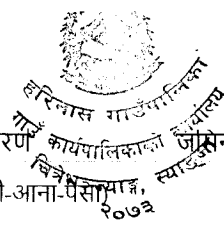 हरिनास गाउँपालिका
गाउँ कार्यपालिकाको कार्यालय
चित्रेभञ्ज्याङ्ग, स्याङ्जा
२०७३
रण
-आना-पैसा)